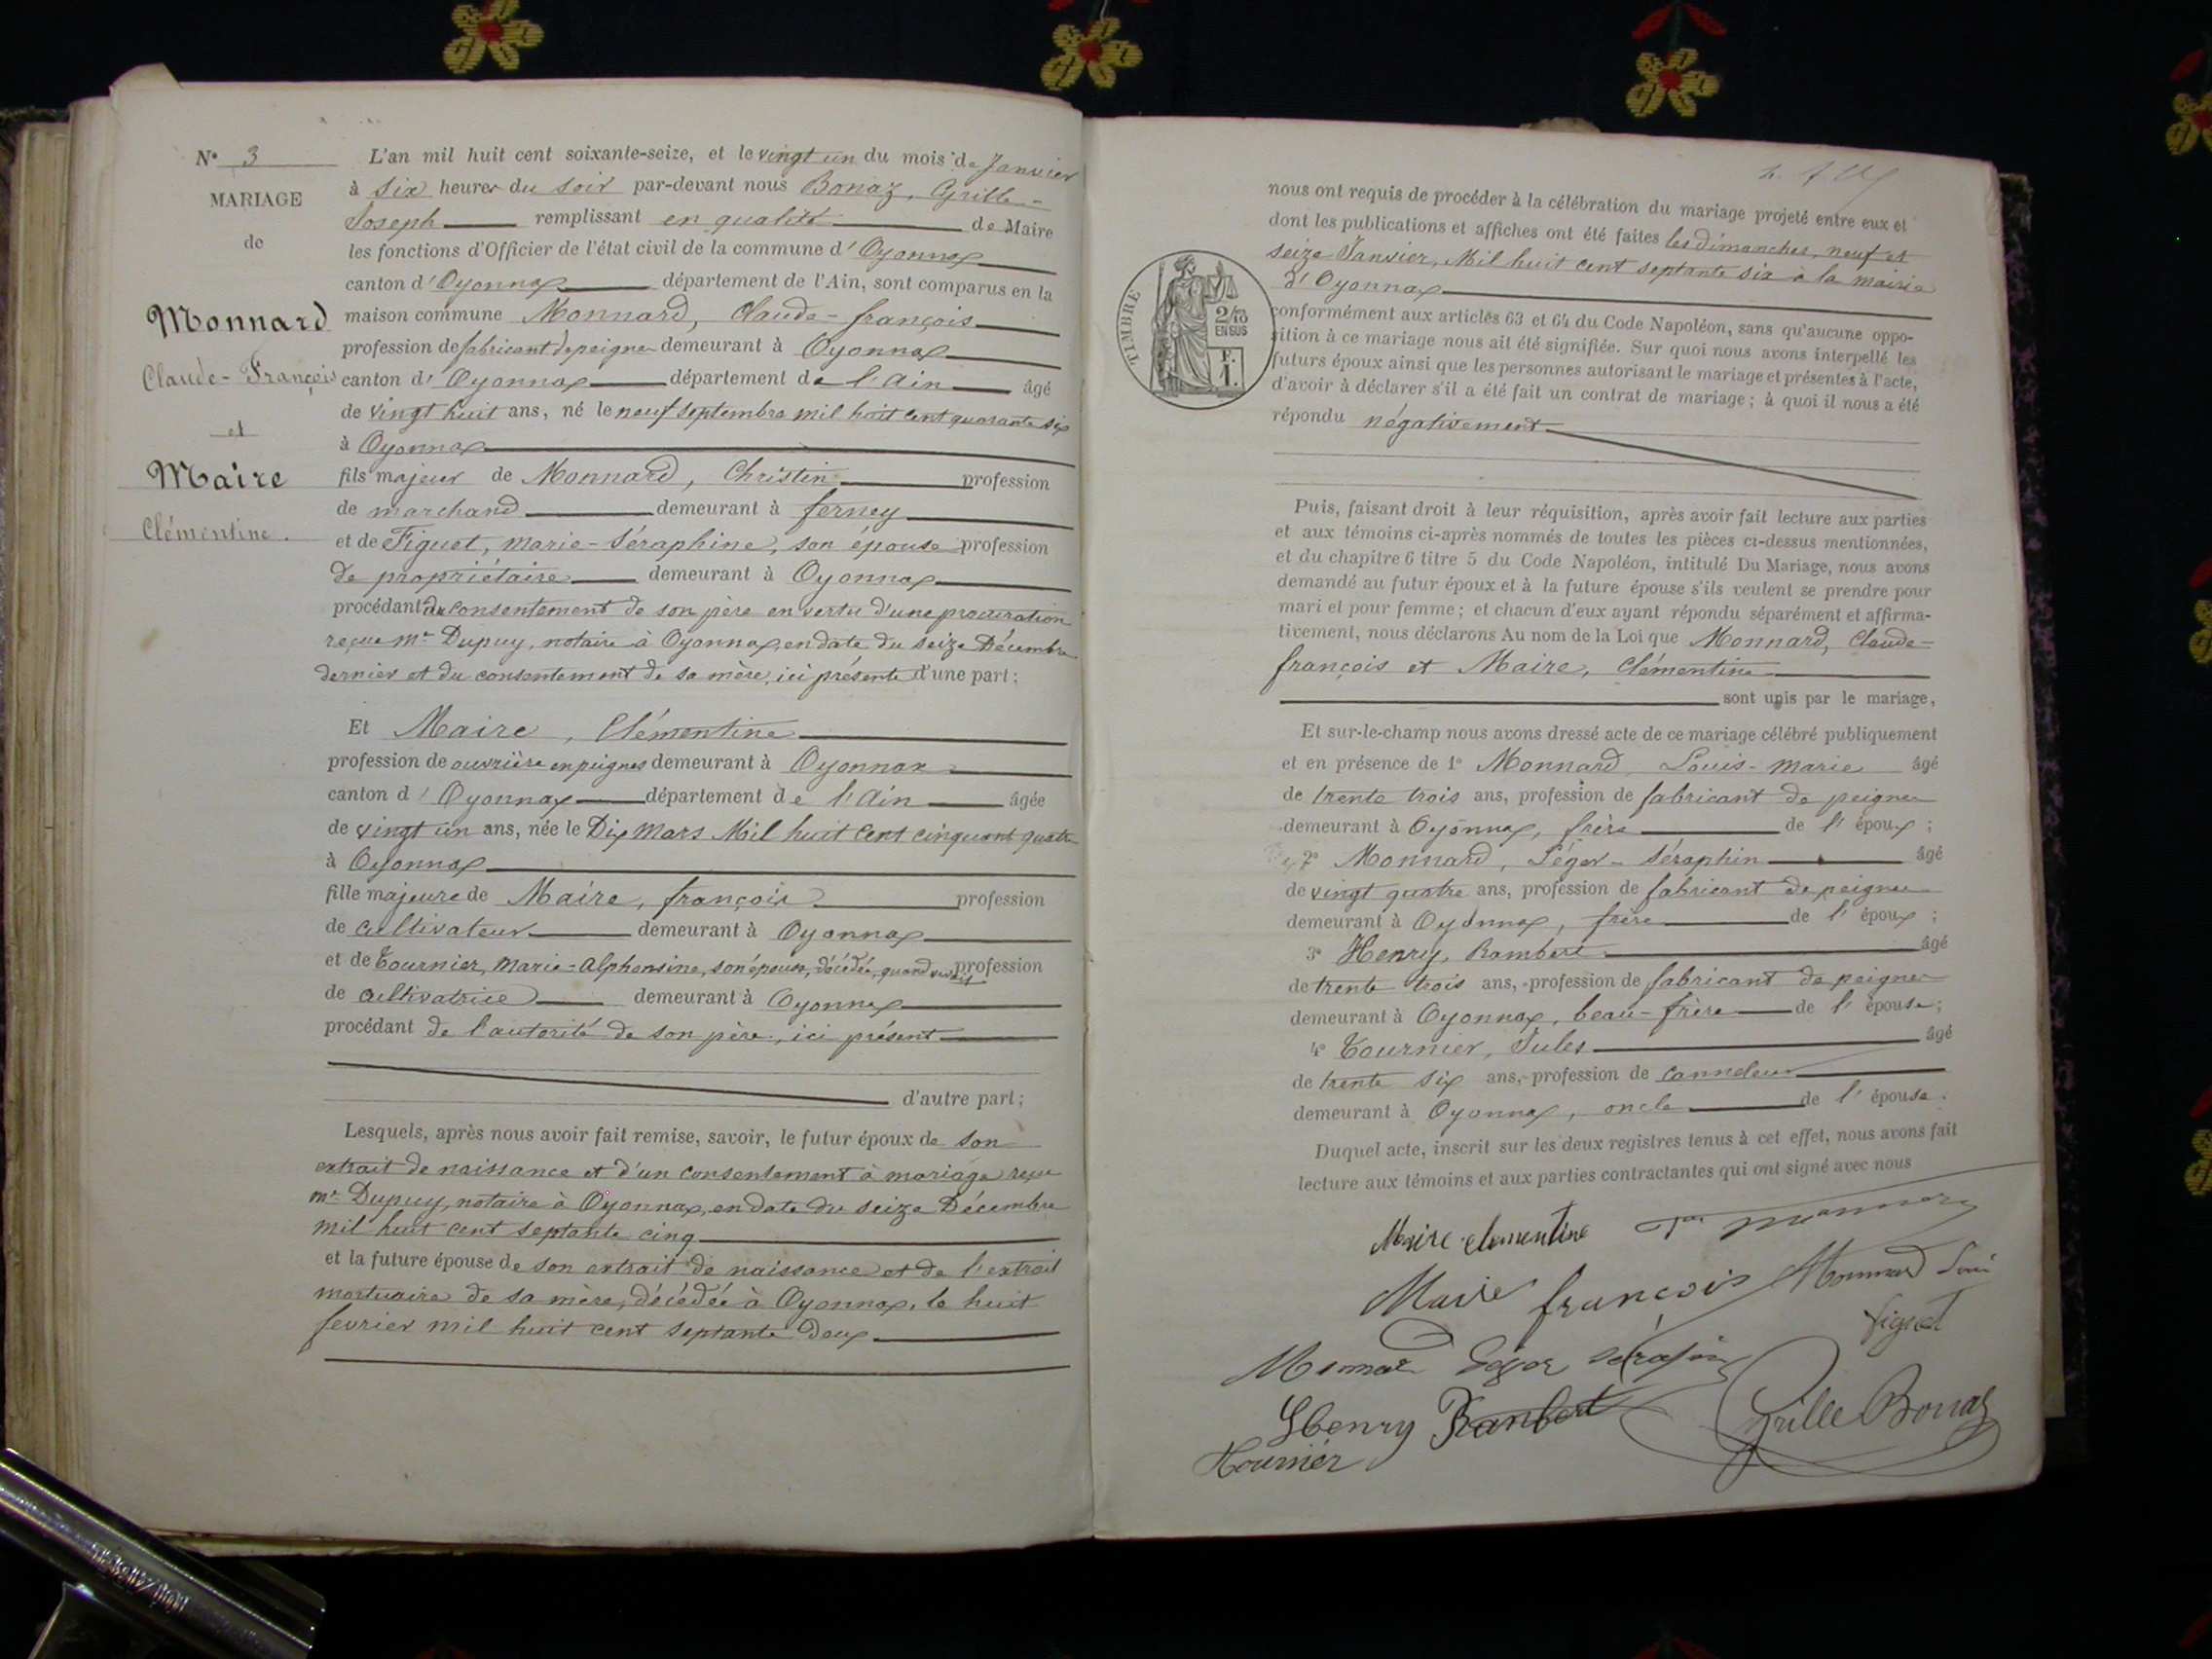 N° 3
MARIAGE
de
Monnard
Claude-François
et
Maire
Clémentine.
L'an mil huit cent soixante-seize, et le vingt un du mois de Janvier
à six heures du soir par-devant nous Bonaz, Grille-
Joseph remplissant en qualité de Maire
les fonctions d'Officier de l'état civil de la commune d'Oyonnax
canton d'Oyonnax département de l'Ain, sont comparus en la
maison commune Monnard, Claude-françois
profession de fabricant de peignes demeurant à Oyonnax
canton d'Oyonnax département de l'Ain âgé
de vingt huit ans, né le neuf septembre mil huit cent quarante six
à Oyonnax
fils majeur de Monnard, Christin profession
de marchand demeurant à ferney
et de Figuet, marie-Séraphine, son épouse profession
de propriétaire demeurant à Oyonnax
procédant du consentement de son père en vertu d'une procuration
reçue Mr Dupuy, notaire à Oyonnax, en date du seize Décembre
dernier et du consentement de sa mère, ici présente d'une part;
Et Maire, Clémentine
profession de ouvrière en peignes demeurant à Oyonnax
canton d'Oyonnax département de l'Ain âgée
de vingt un ans, née le Dix Mars Mil huit Cent cinquant quatre
à Oyonnax
fille majeure de Maire, françois profession
de cultivateur demeurant à Oyonnax
et de Tournier, Marie-Alphonsine, son épouse, décédée, quand vivait profession
de cultivatrice demeurant à Oyonnax
procédant de l'autorité de son père, ici présent
d'autre part;
Lesquels, après nous avoir fait remise, savoir, le futur époux de son
extrait de naissance et d'un consentement à mariage reçu
Mr Dupuy, notaire à Oyonnax, en date du seize Décembre
mil huit cent septante cinq
et la future épouse de son extrait de naissance et de l'extrait
mortuaire de sa mère, décédée à Oyonnax, le huit
fevrier mil huit cent septante deux
nous ont requis de procéder à la célébration du mariage projeté entre eux et
dont les publications et affiches ont été faites les dimanches, neuf et
seize Janvier, Mil huit cent septante six à la mairie
d'Oyonnax
TIMBRE
2/10
EN SUS
F.
1.
conformément aux articles 63 et 64 du Code Napoléon, sans qu'aucune oppo-
sition à ce mariage nous ait été signifiée. Sur quoi nous avons interpellé les
futurs époux ainsi que les personnes autorisant le mariage et présentes à l'acte,
d'avoir à déclarer s'il a été fait un contrat de mariage; à quoi il nous a été
répondu négativement
Puis, faisant droit à leur réquisition, après avoir fait lecture aux parties
et aux témoins ci-après nommés de toutes les pièces ci-dessus mentionnées,
et du chapitre 6 titre 5 du Code Napoléon, intitulé Du Mariage, nous avons
demandé au futur époux et à la future épouse s'ils veulent se prendre pour
mari et pour femme; et chacun d'eux ayant répondu séparément et affirma-
tivement, nous déclarons Au nom de la Loi que Monnard, Claude-
françois et Maire, Clémentine
sont unis par le mariage,
Et sur-le-champ nous avons dressé acte de ce mariage célébré publiquement
et en présence de 1° Monnard Louis-Marie âgé
de trente trois ans, profession de fabricant de peignes
demeurant à Oyonnax, frère de l'époux;
2° Monnard, Léger-Séraphin âgé
de vingt quatre ans, profession de fabricant de peignes
demeurant à Oyonnax, frère de l'époux;
3° Henry, Rambert âgé
de trente trois ans, profession de fabricant de peignes
demeurant à Oyonnax, beau-frère de l'épouse;
4° Tournier, Jules âgé
de trente six ans, profession de canneleur
demeurant à Oyonnax, oncle de l'épouse.
Duquel acte, inscrit sur les deux registres tenus à cet effet, nous avons fait
lecture aux témoins et aux parties contractantes qui ont signé avec nous
Maire clementine
Maire françois Monnard Loui
figuet
Monnar Léger Sérafin
Henry Rambert Grille Bonaz
Tournier